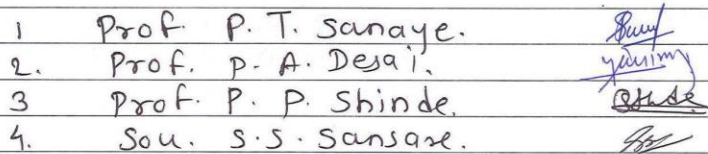 1 Prof. P. T. Sanaye.
2. Prof. P. A. Desai.
3 Prof. P. P. Shinde.
4. Sou. S. S. Sansare.